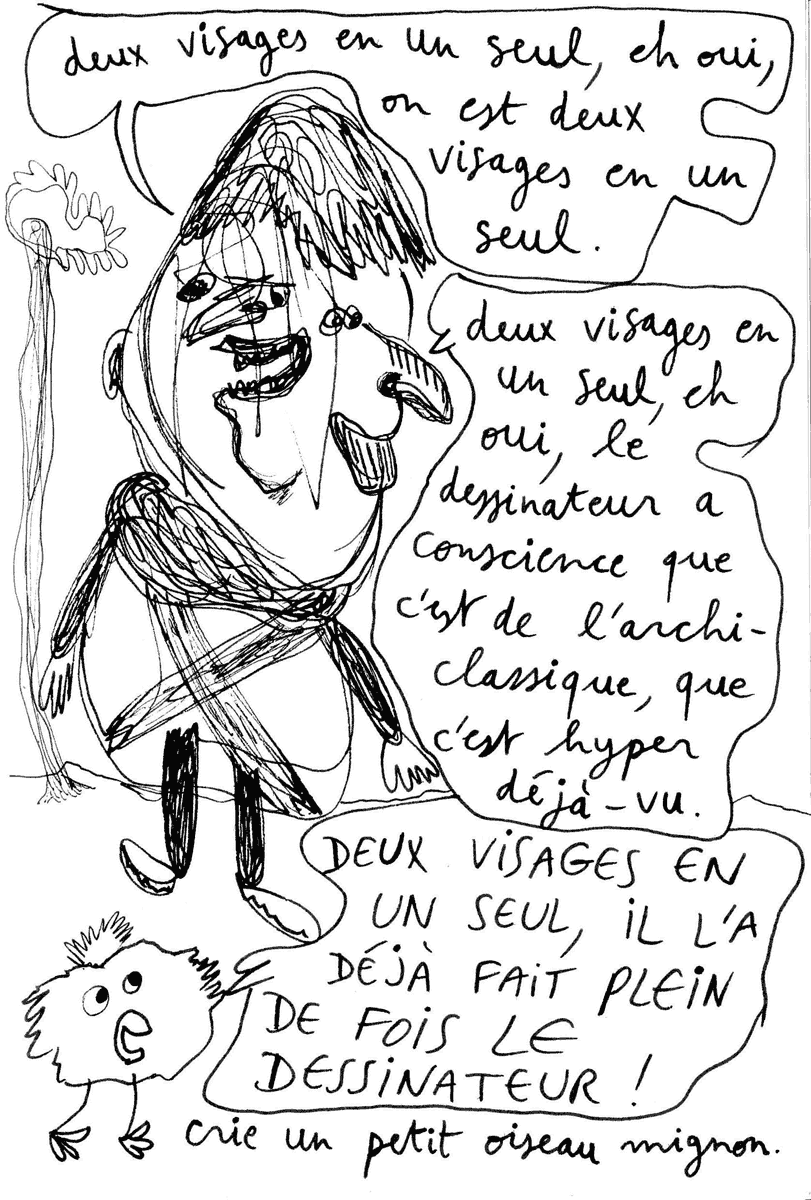 deux visages en un seul, eh oui,
on est deux
visages en un
seul.
deux visages en
un seul, eh
oui, le
dessinateur a
conscience que
c'est de l'archi-
classique, que
c'est hyper
déjà-vu.
DEUX VISAGES EN
UN SEUL, iL L'A
DÉJÀ FAiT PLEiN
DE FOiS LE
DESSiNATEUR !
crie un petit oiseau mignon.